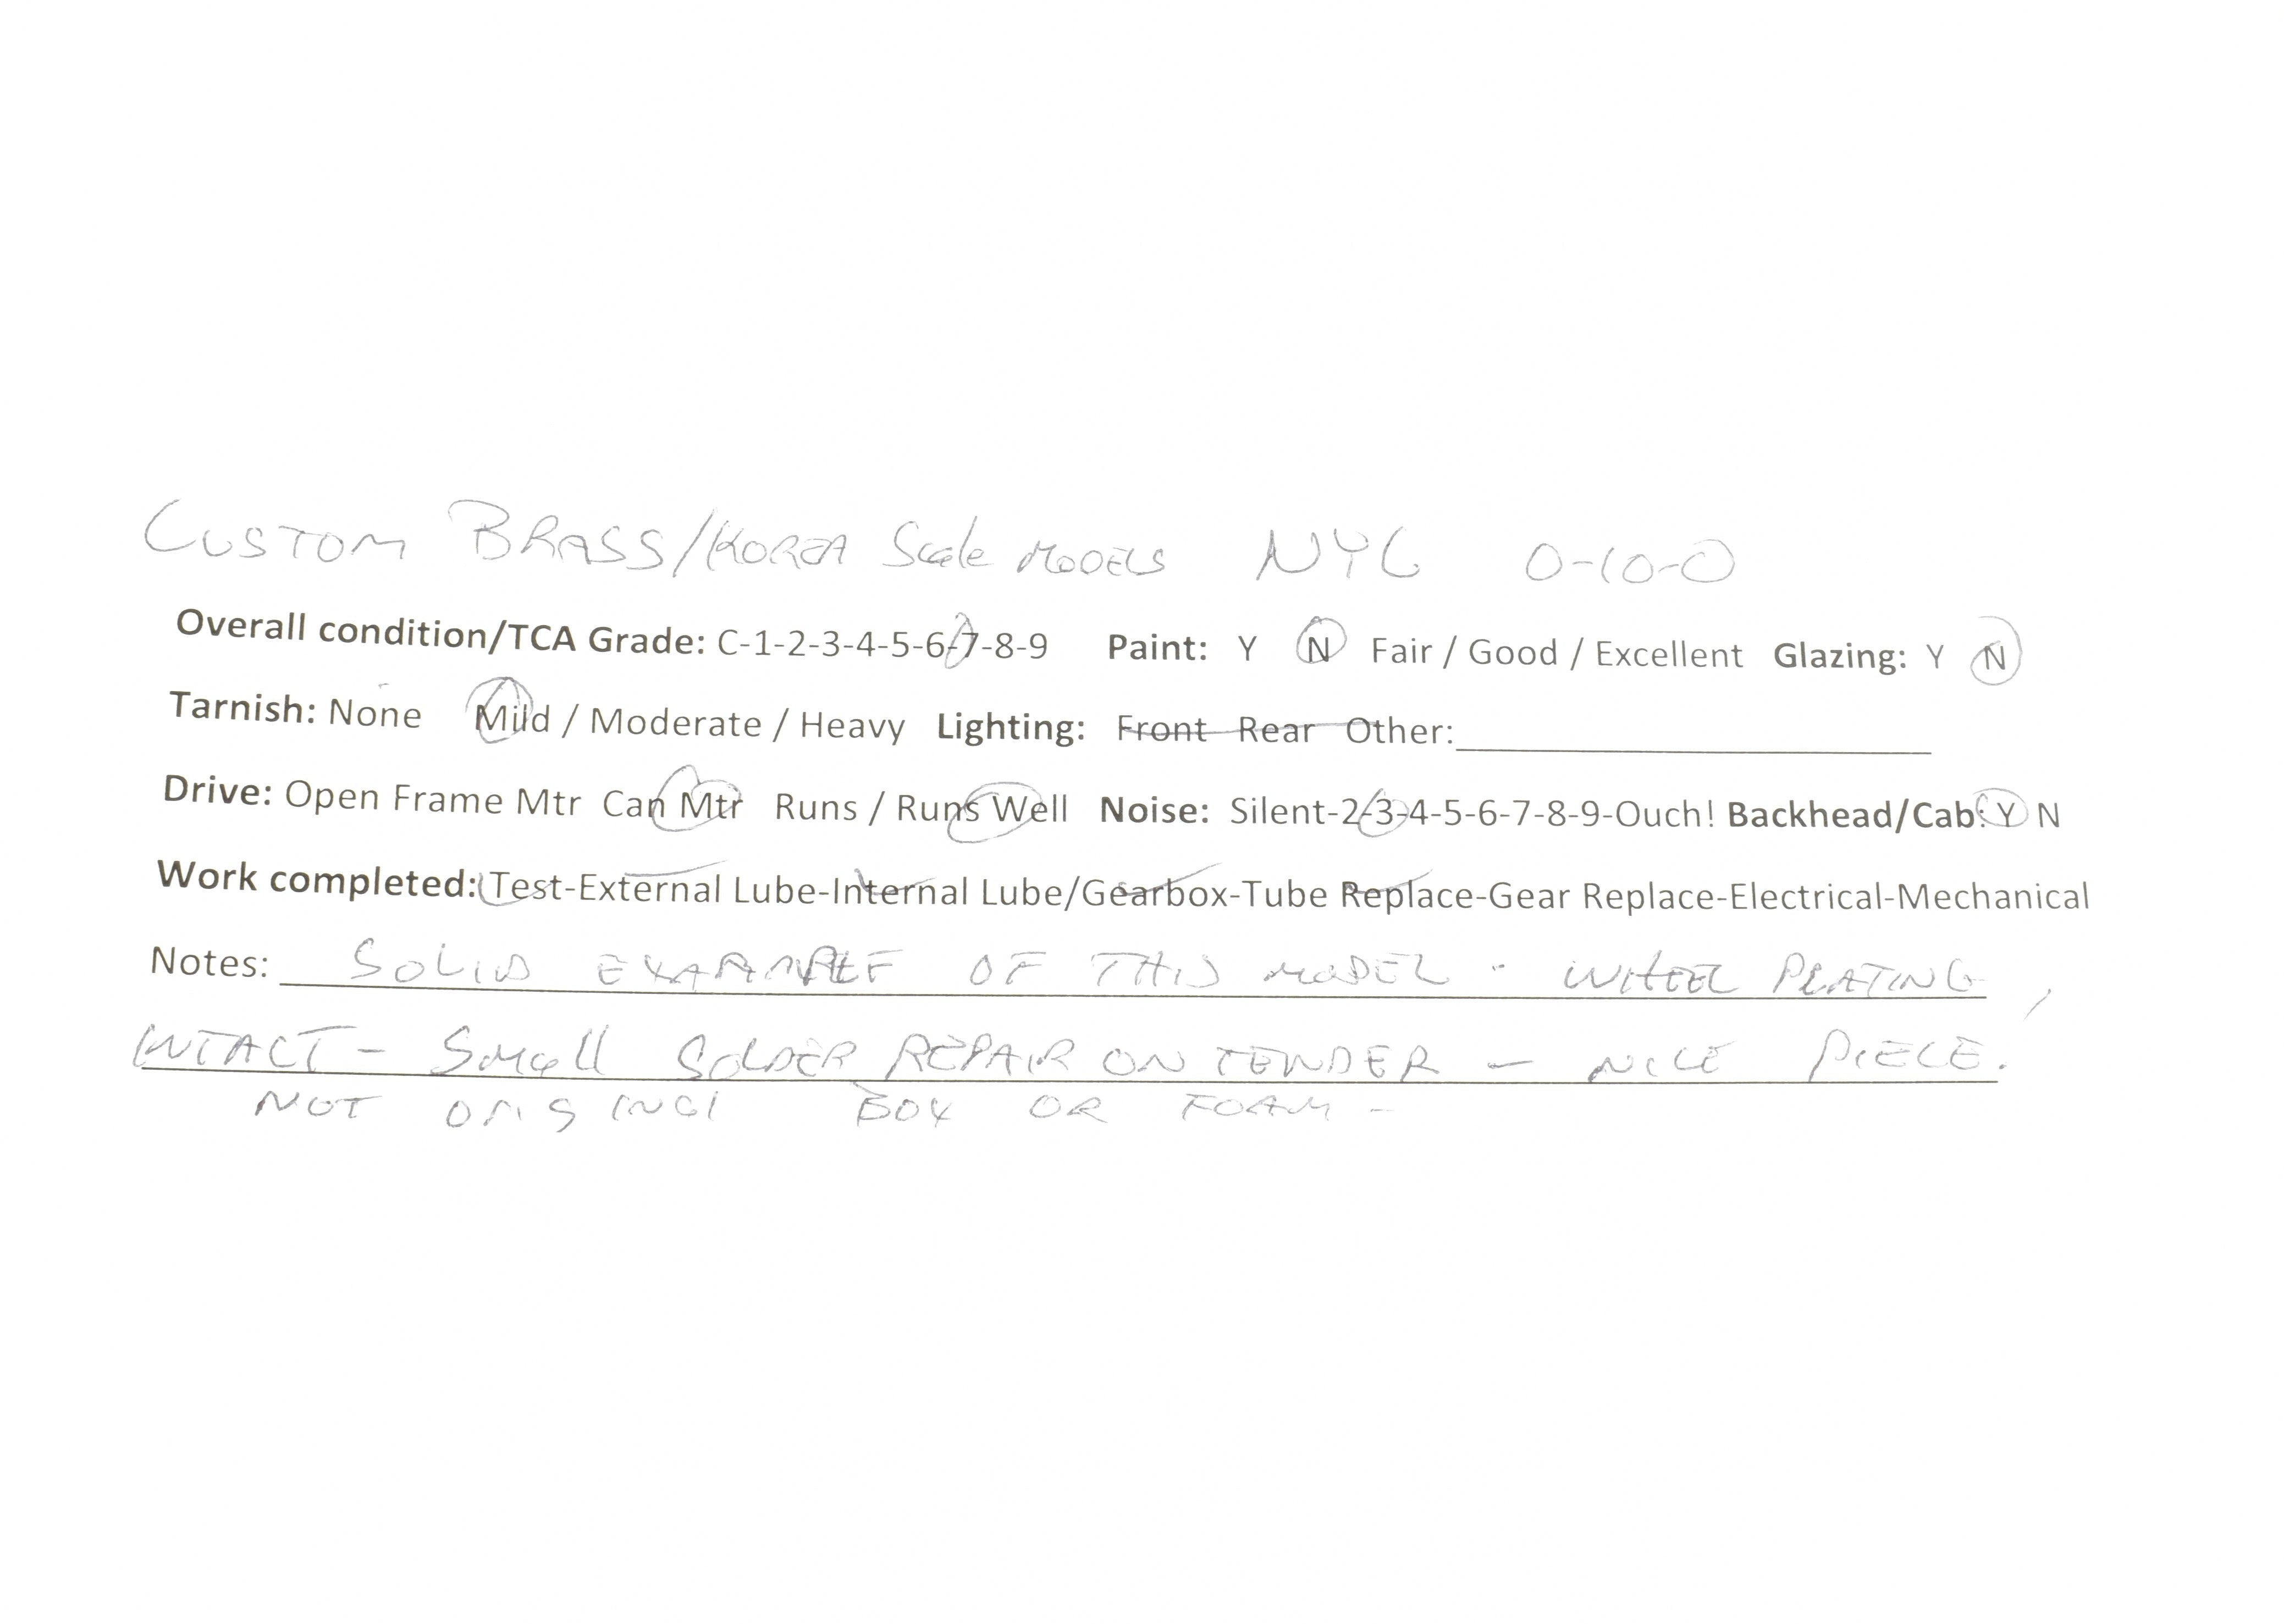 CUSTOM BRASS/KOREA Scale MODELS NYC 0-10-0
Overall condition/TCA Grade: C-1-2-3-4-5-6-7-8-9 Paint: Y N Fair / Good / Excellent Glazing: Y N
Tarnish: None Mild / Moderate / Heavy Lighting: Front Rear Other:
Drive: Open Frame Mtr Can Mtr Runs / Runs Well Noise: Silent-2-3-4-5-6-7-8-9-Ouch! Backhead/Cab: Y N
Work completed: Test-External Lube-Internal Lube/Gearbox-Tube Replace-Gear Replace-Electrical-Mechanical
Notes: SOLID EXAMPLE OF THIS MODEL - WHEEL PLATING
INTACT - Small SOLDER REPAIR ON TENDER - NICE PIECE.
NOT BOX OR FOAM -